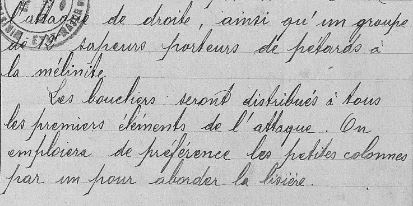 attaque de droite, ainsi qu'un groupe
de sapeurs porteurs de pétards à
la mélinite.
Les boucliers seront distribués à tous
les premiers éléments de l'attaque. On
emploiera de préférence les petites colonnes
par un pour aborder la lisière.